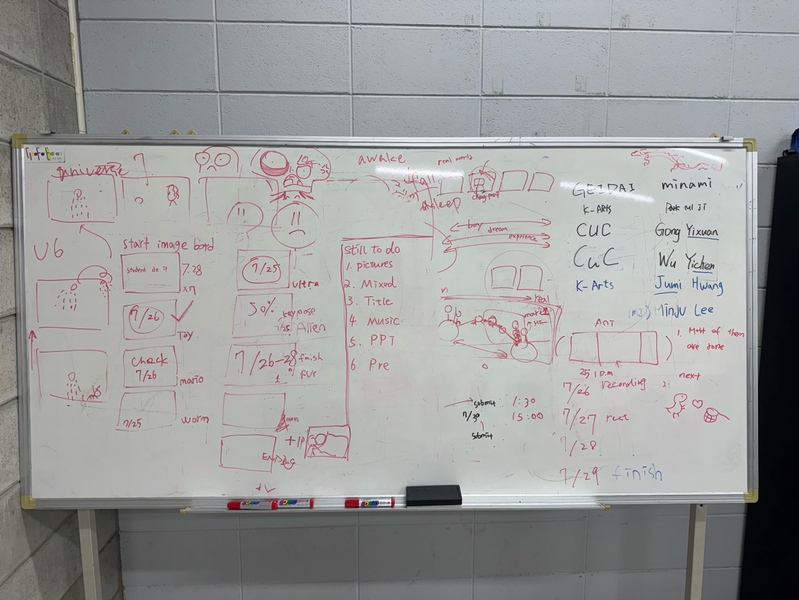 universe
7
V6
start image bord
7.28
7/26
Toy
check
7/26
mario
7/25
worm
7/25
ultra
50%
Alien
7/26-28 finish
fur
ENDING
awake
real world
asleep
busy
dream
experience
still to do
1. pictures
2. Mixed
3. Title
4. Music
5. PPT
6. Pre
real
submit 1:30
7/30 15:00
submit
GEIDAI minami
K-ARTS
CUC Gong Yixuan
CUC Wu Yichen
K-Arts Jumi Hwang
MinJu Lee
1. Most of them
are done
2. next
7/26 recording
7/27 rest
7/28
7/29 finish